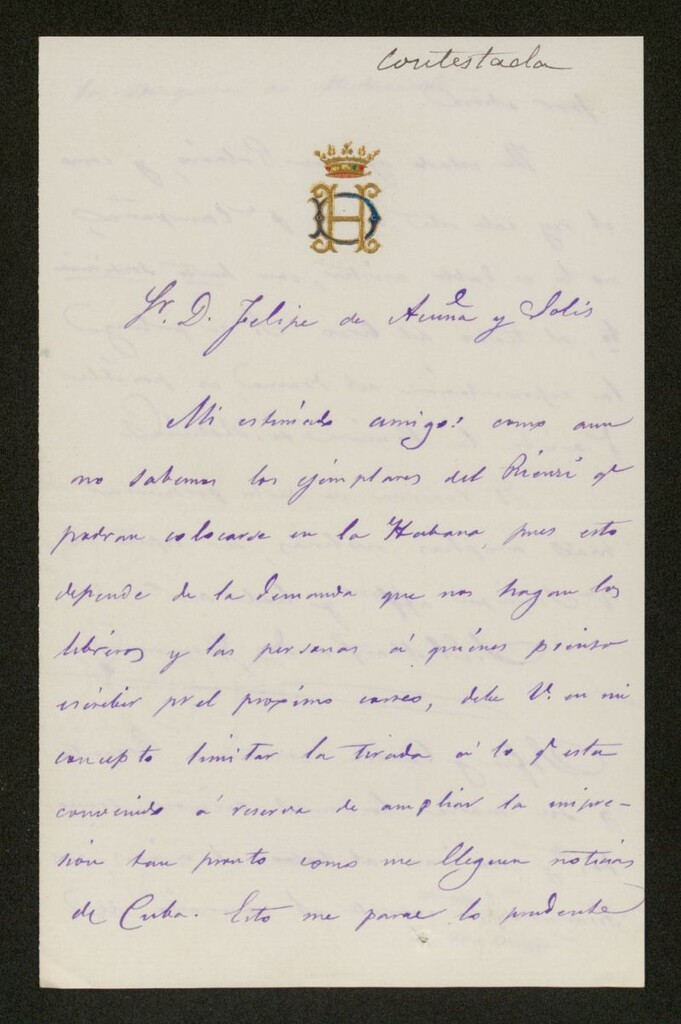 Contestada
HD
Sr. D. Felipe de Acuña y Solís
Mi estimado amigo: como aun
no sabemos los ejemplares del Rienzi qe
podran colocarse en la Habana, pues esto
depende de la demanda que nos hagan los
libreros y las personas á quienes pienso
escribir pr el proximo correo, debe V. en mi
concepto limitar la tirada á lo qe esta
convenido á reserva de ampliar la impre-
sion tan pronto como me lleguen noticias
de Cuba. Esto me parece lo prudente